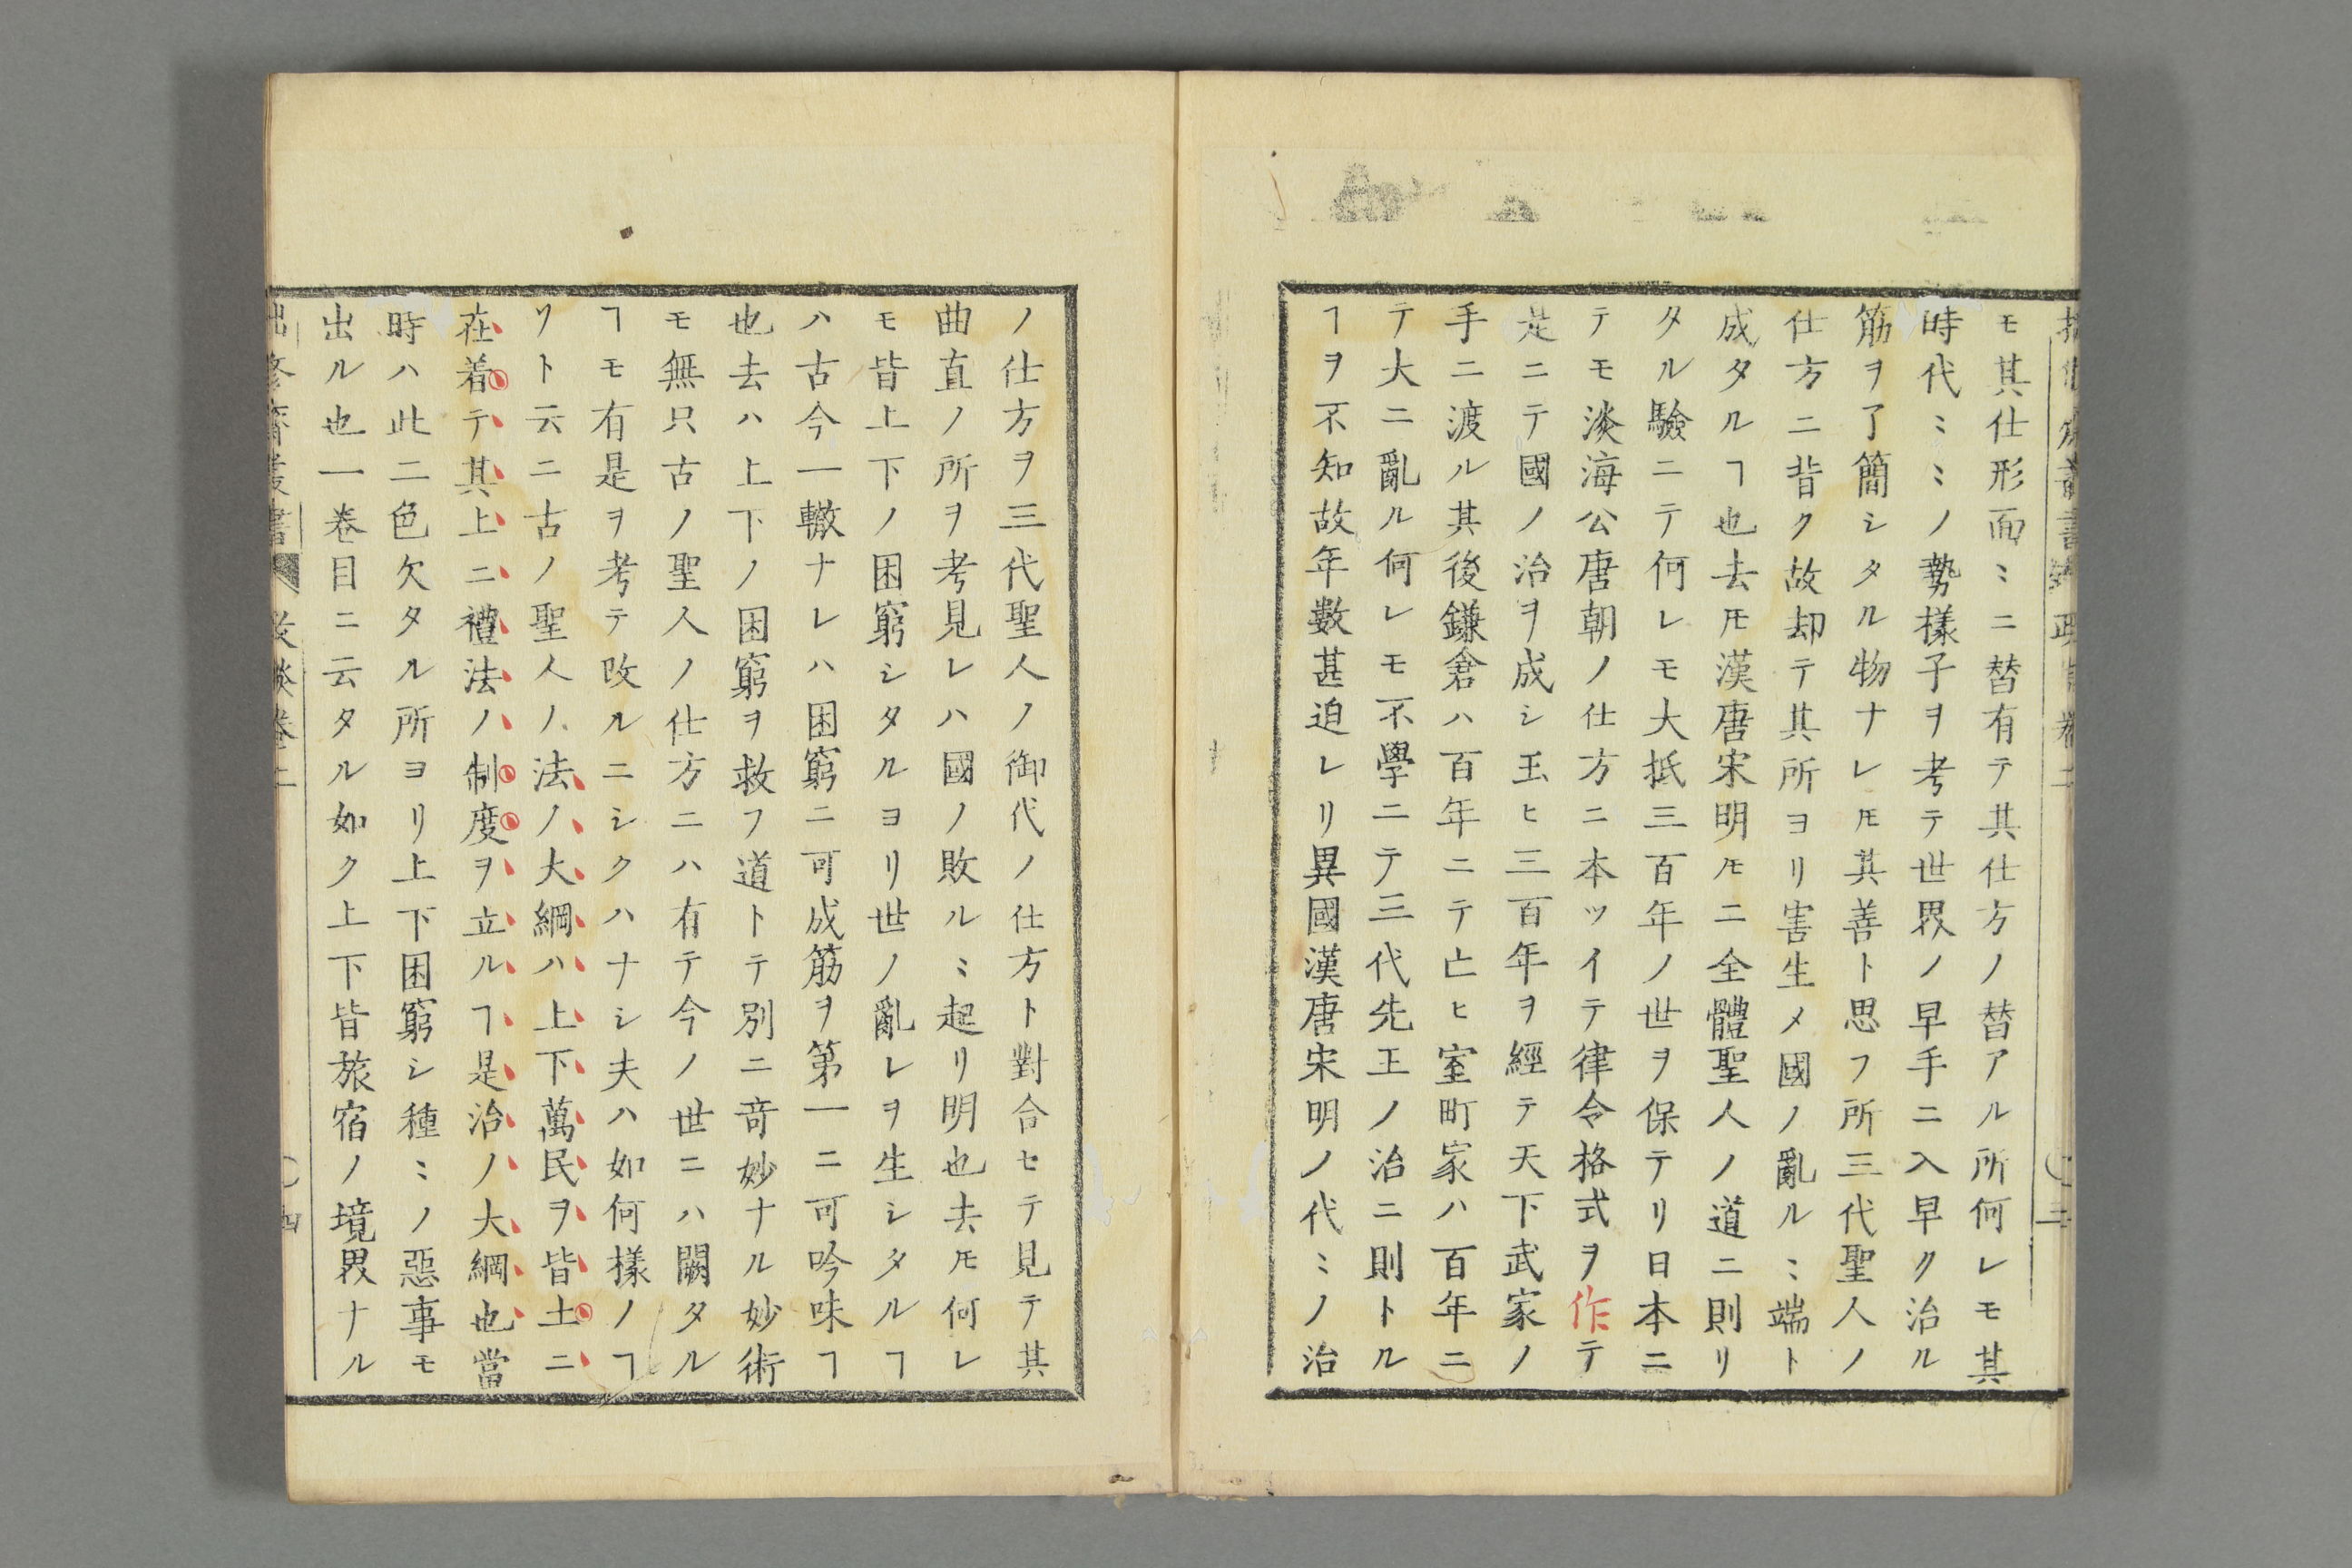 モ其仕形面ミニ替有テ其仕方ノ替アル所何レモ其
時代ミミノ勢樣子ヲ考テ世界ノ早手ニ入早ク治ル
筋ヲ了簡シタル物ナレ𪜈其善ト思フ所三代聖人ノ
仕方ニ昔ク故却テ其所ヨリ害生メ國ノ亂ルミ端ト
成タルヿ也去𪜈漢唐宋明𪜈ニ全體聖人ノ道ニ則リ
タル驗ニテ何レモ大抵三百年ノ世ヲ保テリ日本ニ
テモ淡海公唐朝ノ仕方ニ本ツイテ律令格式ヲ作テ
是ニテ國ノ治ヲ成シ玉ヒ三百年ヲ經テ天下武家ノ
手ニ渡ル其後鎌倉ハ百年ニテ亡ヒ室町家ハ百年ニ
テ大ニ亂ル何レモ不學ニテ三代先王ノ治ニ則トル
ヿヲ不知故年數甚迫レリ異國漢唐宋明ノ代ミノ治
ノ仕方ヲ三代聖人ノ御代ノ仕方ト對合セテ見テ其
曲直ノ所ヲ考見レハ國ノ敗ルミ起リ明也去𪜈何レ
モ皆上下ノ困窮シタルヨリ世ノ亂レヲ生シタルヿ
ハ古今一轍ナレハ困窮ニ可成筋ヲ第一ニ可吟味ヿ
也去ハ上下ノ困窮ヲ救フ道トテ別ニ竒妙ナル妙術
モ無只古ノ聖人ノ仕方ニハ有テ今ノ世ニハ闕タル
ヿモ有是ヲ考テ改ルニシクハナシ夫ハ如何樣ノヿ
ソト云ニ古ノ聖人ノ法ノ大綱ハ上下萬民ヲ皆土ニ
在着テ其上ニ禮法ノ制度ヲ立ルヿ是治ノ大綱也當
時ハ此二色欠タル所ヨリ上下困窮シ種ミノ惡事モ
出ル也一巻目ニ云タル如ク上下皆旅宿ノ境界ナル